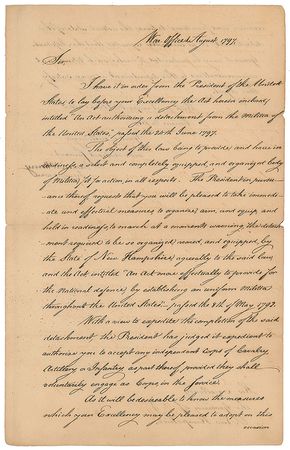 War Office August 1797.
Sir,
I have it in order from the President of the United
States, to lay before your Excellency the Act herein inclosed,
intitled "An Act authorizing a detachment from the Militia of
the United States," passed the 24th June 1797.
The object of this law being to provide, and have in
readiness, a select and completely equipped, and organized body
of Militia, for action in all respects. The President in pursu-
ance thereof requests that you will be pleased to take immedi-
ate and effectual measures to organize, arm, and equip and
hold in readiness, to march at a moments warning the detach-
ment required to be so organized, armed, and equipped, by
the State of New Hampshire agreeably to the said Law
and the Act intitled "An Act more effectually to provide for
the National defence, by establishing an uniform Militia
throughout the United States" passed the 8th of May 1792.
With a view to expedite the completion of the said
detachment the President has judged it expedient to
authorize you to accept any independent Corps of Cavalry,
Artillery or Infantry, as part thereof, provided they shall
voluntarily engage as Corps in the service.
As it will be desireable to know the measures
which your Excellency may be pleased to adopt on this
occasion